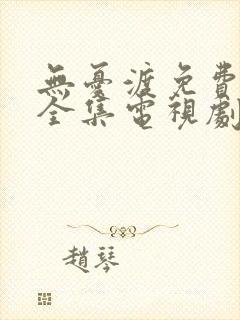 無憂渡免費
全集電視劇
趙琴